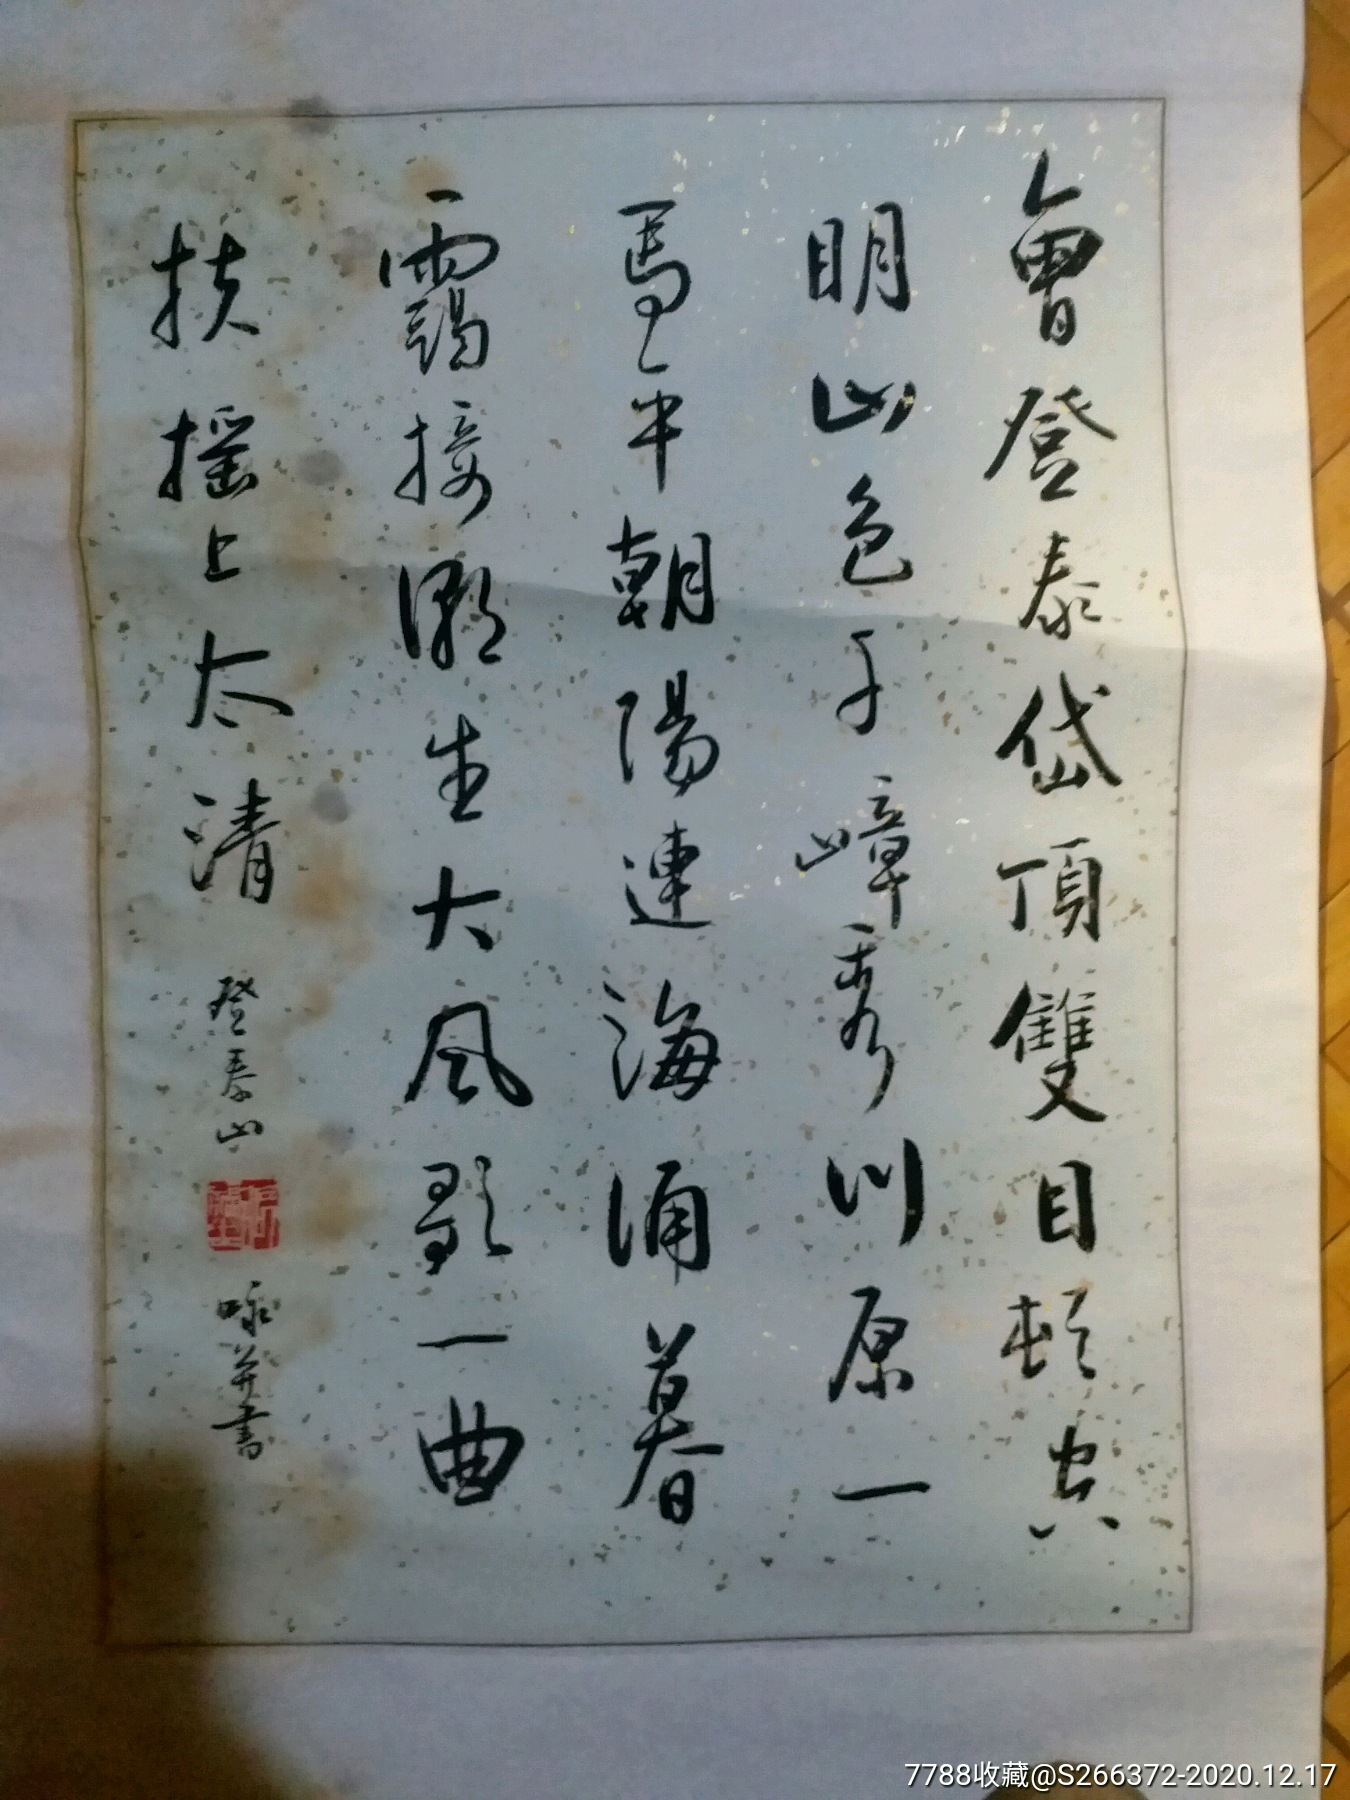 會登泰岱頂雙目頓
明山色千嶂秀川原一
馬平朝陽連海涌暮
靄接潮生大風歌一曲
扶摇上太清
登泰山
咏并書
7788收藏@S266372-2020.12.17